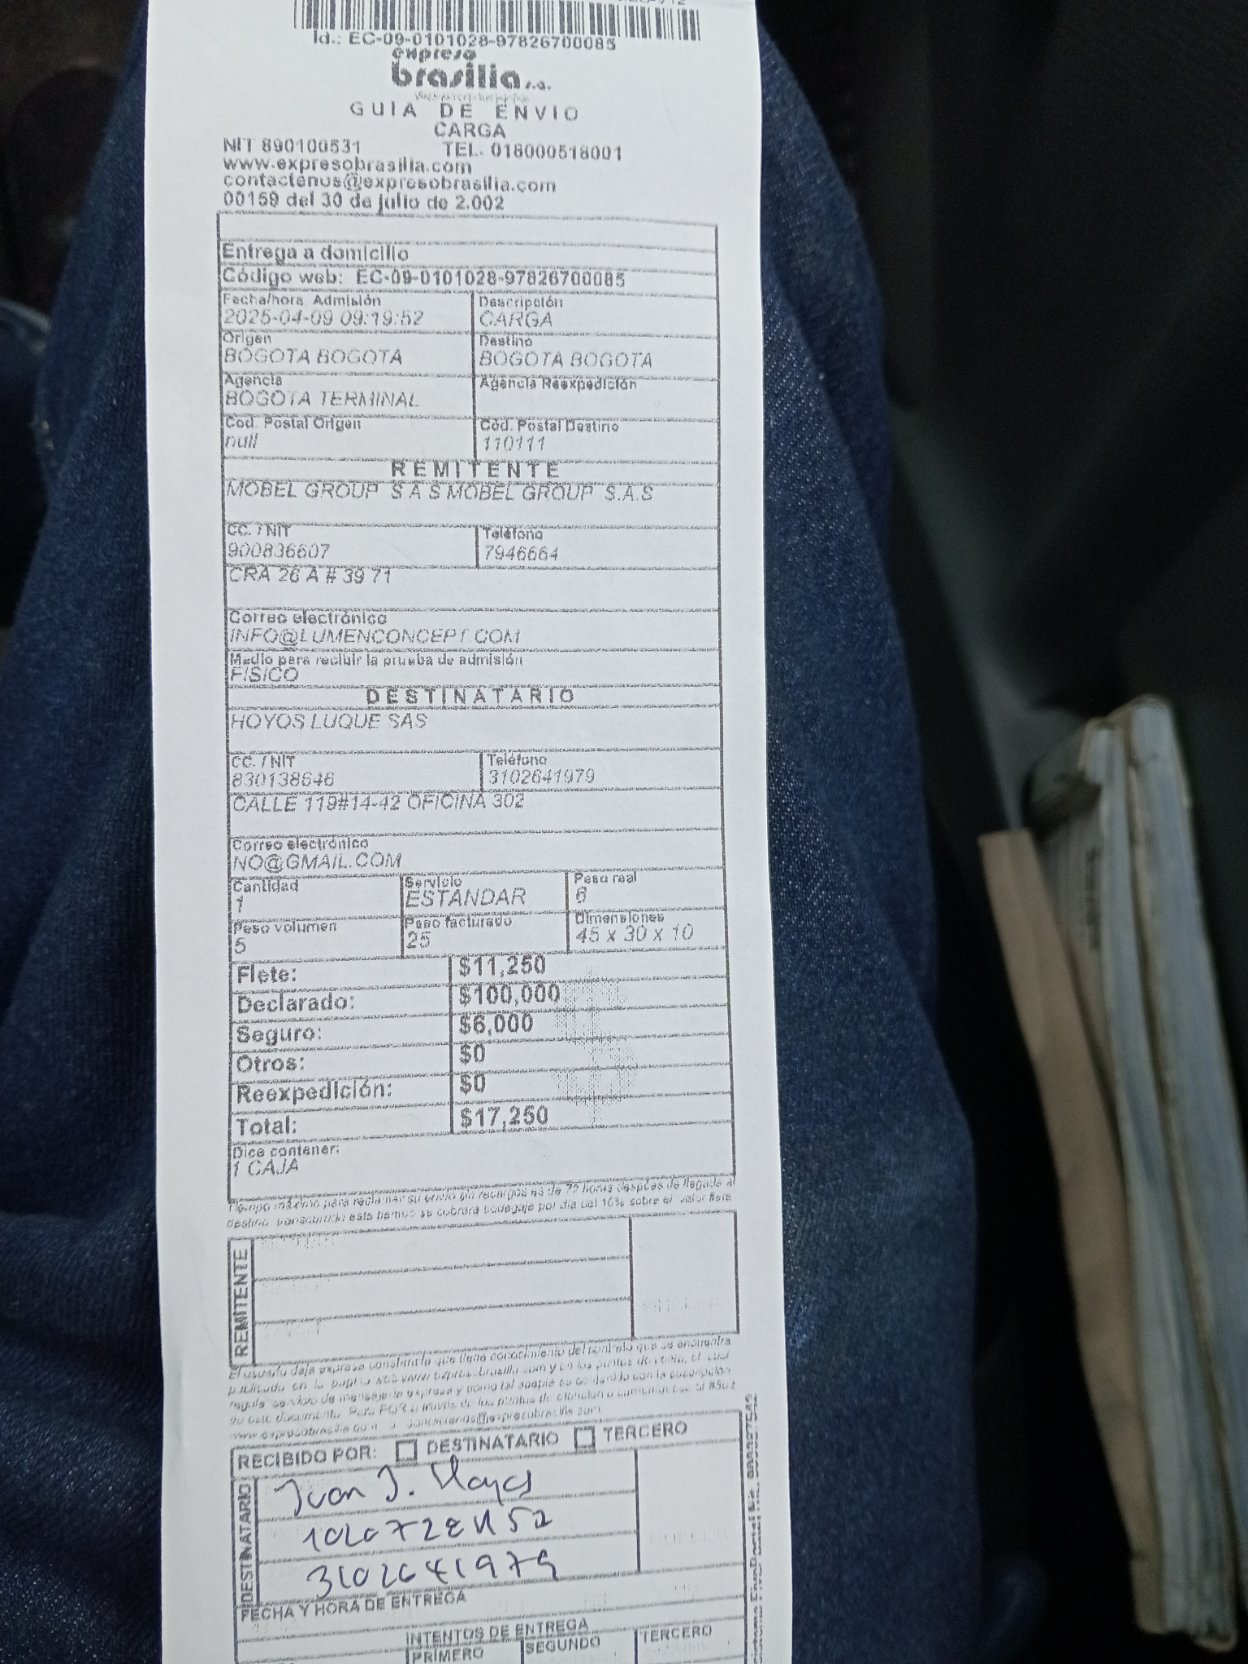 Id.: EC-09-0101028-97826700085
expreso
brasilia s.a.
GUIA DE ENVIO
CARGA
NIT 890100531 TEL. 018000518001
www.expresobrasilia.com
contactenos@expresobrasilia.com
00159 del 30 de julio de 2.002
Entrega a domicilio
Código web: EC-09-0101028-97826700085
Fecha/hora Admisión Descripción
2025-04-09 09:19:52 CARGA
Origen Destino
BOGOTA BOGOTA BOGOTA BOGOTA
Agencia Agencia Reexpedición
BOGOTA TERMINAL
Cod. Postal Origen Cod. Postal Destino
null 110111
REMITENTE
MOBEL GROUP S A S MOBEL GROUP S.A.S
CC. / NIT Teléfono
900836607 7946664
CRA 26 A # 39 71
Correo electrónico
INFO@LUMENCONCEPT.COM
Medio para recibir la prueba de admisión
FISICO
DESTINATARIO
HOYOS LUQUE SAS
CC. / NIT Teléfono
830138646 3102641979
CALLE 119#14-42 OFICINA 302
Correo electrónico
NO@GMAIL.COM
Cantidad Servicio Peso real
1 ESTANDAR 6
Peso volumen Peso facturado Dimensiones
5 25 45 x 30 x 10
Flete: $11,250
Declarado: $100,000
Seguro: $6,000
Otros: $0
Reexpedición: $0
Total: $17,250
Dice contener:
1 CAJA
Tiempo máximo para reclamar su envío sin recargos es de 72 horas después de llegada al
destino, transcurrido este tiempo se cobrará bodegaje por día del 10% sobre el valor flete
REMITENTE
El usuario deja expresa constancia que tiene conocimiento del contrato que se encuentra
publicado en la pagina web www.expresobrasilia.com y en los puntos de venta, el cual
RECIBIDO POR: DESTINATARIO TERCERO
DESTINATARIO
Juan J. Hoyos
3102641979
FECHA Y HORA DE ENTREGA
INTENTOS DE ENTREGA
PRIMERO SEGUNDO TERCERO